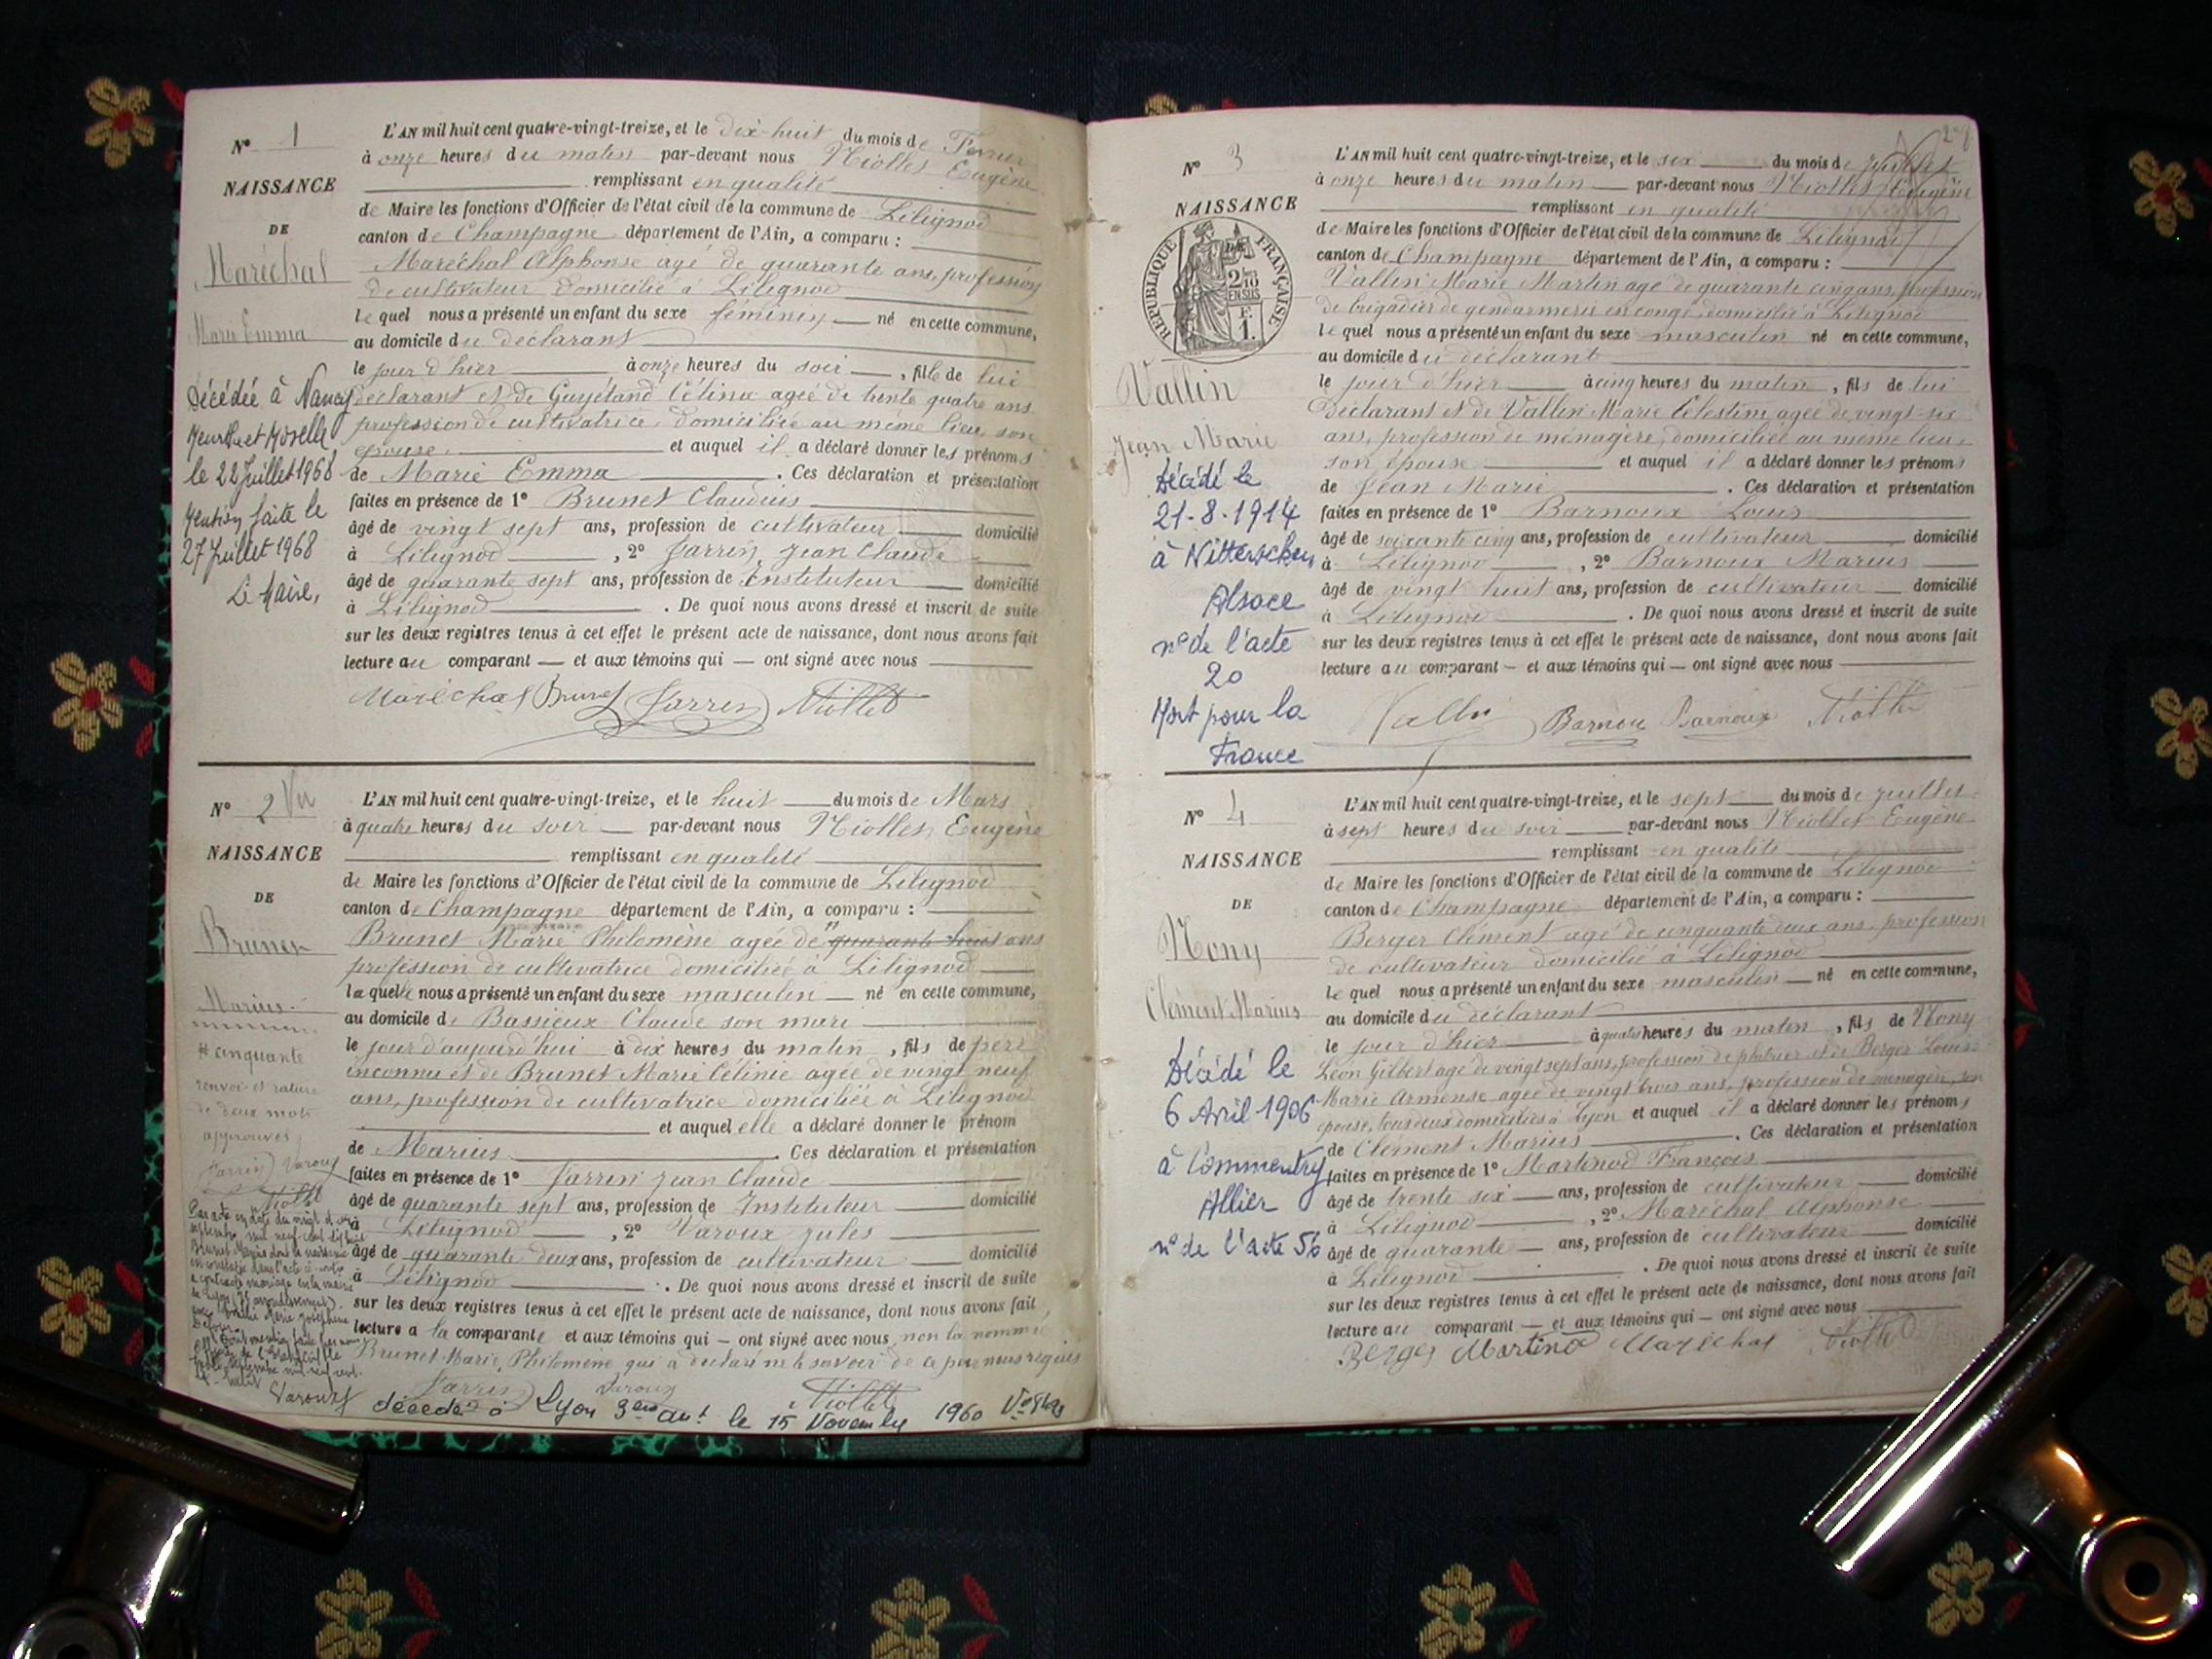 Nº 1
NAISSANCE
DE
Maréchal
Marie Emma
Décédée à Nancy
Meurthe et Moselle
le 22 Juillet 1968
Mention faite le
27 Juillet 1968
Le Maire,
L'AN mil huit cent quatre-vingt-treize, et le dix-huit du mois de Fevrier
à onze heures du matin par-devant nous Niollet Eugène
remplissant en qualité
de Maire les fonctions d'Officier de l'état civil de la commune de Lilignod
canton de Champagne département de l'Ain, a comparu :
Maréchal Alphonse agé de quarante ans, profession
de cultivateur domicilié à Lilignod
le quel nous a présenté un enfant du sexe féminin né en cette commune,
au domicile du déclarant
le jour d'hier à onze heures du soir, fille de lui
déclarant et de Guyétand Céline agée de trente quatre ans
profession de cultivatrice, domiciliée au même lieu, son
épouse et auquel il a déclaré donner les prénoms
de Marie Emma. Ces déclaration et présentation
faites en présence de 1º Brunet Claudius
âgé de vingt sept ans, profession de cultivateur domicilié
à Lilignod, 2º Jarrin, Jean Claude
âgé de quarante sept ans, profession de Instituteur domicilié
à Lilignod. De quoi nous avons dressé et inscrit de suite
sur les deux registres tenus à cet effet le présent acte de naissance, dont nous avons fait
lecture au comparant — et aux témoins qui — ont signé avec nous
Maréchal Brunet Jarrin Niollet
Nº 2 Vu
NAISSANCE
DE
Brunet
Marius
# cinquante
renvoi et rature
de deux mots
approuvés
Jarrin Varoux
Niollet
L'AN mil huit cent quatre-vingt-treize, et le huit du mois de Mars
à quatre heures du soir par-devant nous Niollet Eugène
remplissant en qualité
de Maire les fonctions d'Officier de l'état civil de la commune de Lilignod
canton de Champagne département de l'Ain, a comparu :
Brunet Marie Philomène agée de # quarante huit ans
profession de cultivatrice domiciliée à Lilignod
laquelle nous a présenté un enfant du sexe masculin né en cette commune,
au domicile de Bassieux Claude son mari
le jour d'aujourd'hui à dix heures du matin, fils de père
inconnu et de Brunet Marie Célinie agée de vingt neuf
ans, profession de cultivatrice domiciliée à Lilignod
et auquel elle a déclaré donner le prénom
de Marius. Ces déclaration et présentation
faites en présence de 1º Jarrin Jean Claude
âgé de quarante sept ans, profession de Instituteur domicilié
à Lilignod, 2º Varoux Jules
âgé de quarante deux ans, profession de cultivateur domicilié
à Lilignod. De quoi nous avons dressé et inscrit de suite
sur les deux registres tenus à cet effet le présent acte de naissance, dont nous avons fait
lecture a la comparante et aux témoins qui — ont signé avec nous, non la nommée
Brunet Marie Philomène qui a déclaré ne le savoir de ce par nous requis
Jarrin Varoux Niollet
Varoux
décédé à Lyon 3ème arrt le 15 Novembre 1960
Nº 3
NAISSANCE
DE
RÉPUBLIQUE FRANÇAISE
2/10
EN SUS
F.
1.
Vallin
Jean Marie
Décédé le
21-8-1914
à Nitterschen
Alsace
nº de l'acte
20
Mort pour la
France
L'AN mil huit cent quatre-vingt-treize, et le six du mois de juillet
à onze heures du matin par-devant nous Niollet Eugène
remplissant en qualité
de Maire les fonctions d'Officier de l'état civil de la commune de Lilignod
canton de Champagne département de l'Ain, a comparu :
Vallin Marie Martin agé de quarante cinq ans, profession
de brigadier de gendarmerie en congé, domicilié à Lilignod
le quel nous a présenté un enfant du sexe masculin né en cette commune,
au domicile du déclarant
le jour d'hier à cinq heures du matin, fils de lui
Déclarant et de Vallin Marie Célestine, agée de vingt-six
ans, profession de ménagère, domiciliée au même lieu
son épouse et auquel il a déclaré donner les prénoms
de Jean Marie. Ces déclaration et présentation
faites en présence de 1º Barnoux Louis
âgé de soixante cinq ans, profession de cultivateur domicilié
à Lilignod, 2º Barnoux Marius
âgé de vingt huit ans, profession de cultivateur domicilié
à Lilignod. De quoi nous avons dressé et inscrit de suite
sur les deux registres tenus à cet effet le présent acte de naissance, dont nous avons fait
lecture au comparant — et aux témoins qui — ont signé avec nous
Vallin Barnou Barnoux Niollet
Nº 4
NAISSANCE
DE
Nony
Clément Marius
Décédé le
6 Avril 1906
à Commentry
Allier
nº de l'acte 56
L'AN mil huit cent quatre-vingt-treize, et le sept du mois de juillet
à sept heures du soir par-devant nous Niollet Eugène
remplissant en qualité
de Maire les fonctions d'Officier de l'état civil de la commune de Lilignod
canton de Champagne département de l'Ain, a comparu :
Berger Clément agé de cinquante deux ans, profession
de cultivateur domicilié à Lilignod
le quel nous a présenté un enfant du sexe masculin né en cette commune,
au domicile du déclarant
le jour d'hier à quatre heures du matin, fils de Nony
Léon Gilbert agé de vingt sept ans, profession de plâtrier et de Berger Louise
Marie Armense agée de vingt trois ans, profession de ménagère, son
épouse, tous deux domiciliés à Lyon et auquel il a déclaré donner les prénoms
de Clément Marius. Ces déclaration et présentation
faites en présence de 1º Martinod François
âgé de trente six ans, profession de cultivateur domicilié
à Lilignod, 2º Maréchal Alphonse
âgé de quarante ans, profession de cultivateur domicilié
à Lilignod. De quoi nous avons dressé et inscrit de suite
sur les deux registres tenus à cet effet le présent acte de naissance, dont nous avons fait
lecture au comparant — et aux témoins qui — ont signé avec nous
Berger Martinod Maréchal Niollet